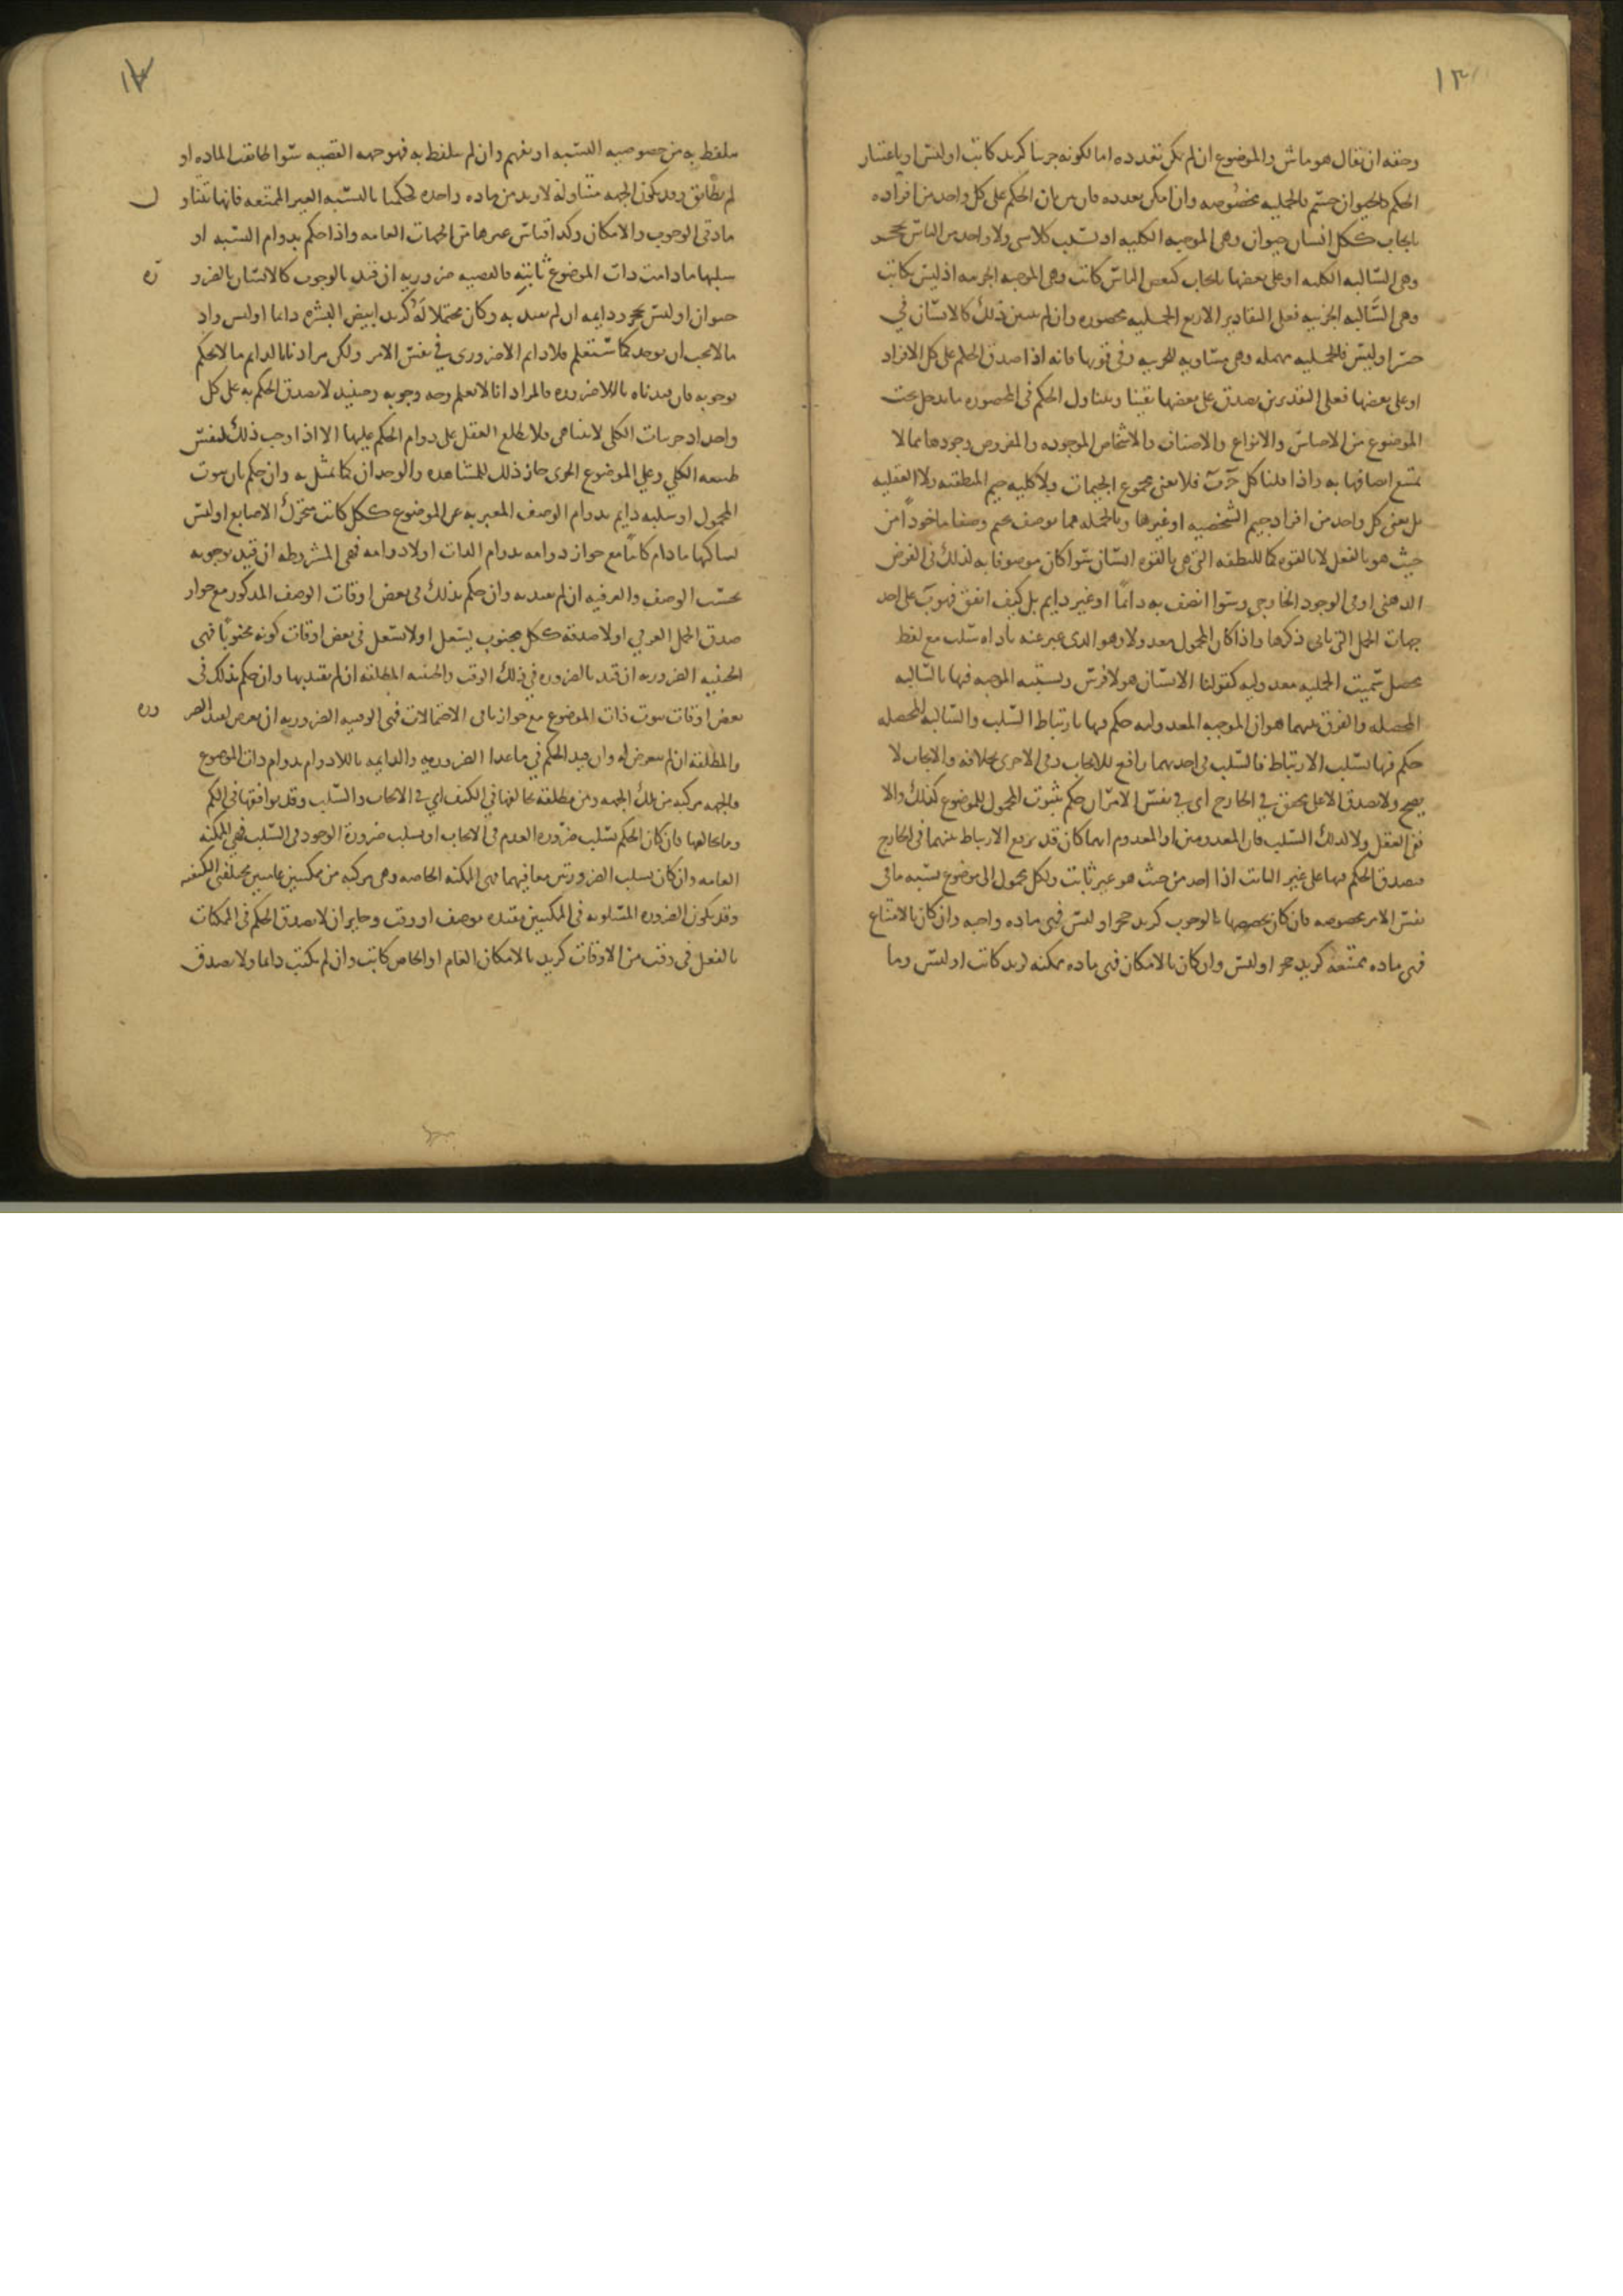 ١٣
وحقه ان يقال هو ماش والموضوع ان لم يمكن تعدده اما لكونه جزئيا كزيد كاتب او ليس او باعتبار
الحكم كالحيوان جنس فالحملية مخصوصه وان امكن تعدده فان بين ان الحكم على كل واحد من افراده
بايجاب ككل انسان حيوان وهى الموجبه الكليه او بسلب كلا شى ولا واحد من الناس بحجر
وهى السالبه الكليه او على بعضها بايجاب كبعض الناس كاتب وهى الموجبه الجزئيه او ليس بكاتب
وهى السالبه الجزئيه فعلى التقادير الاربع الحمليه محصوره وان لم يتبين ذلك كالانسان في
خسر او ليس فالحمليه مهمله وهى مساويه للجزئيه وفى قوتها فانه اذا صدق الحكم على كل الافراد
او على بعضها فعلى التقديرين يصدق على بعضها يقينا ويتناول الحكم فى المحصوره ما يدخل تحت
الموضوع من الاجناس والانواع والاصناف والاشخاص الموجوده والمفروض وجودها مما لا
يمتنع اتصافها به واذا قلنا كل ج ب فلا نعنى مجموع الجيمات ولا كليه جيم المنطقيه ولا العقليه
بل نعنى كل واحد من افراد جيم الشخصيه او غيرها وبالجمله مما يوصف بجيم وصفا ماخوذا من
حيث هو بالفعل لا بالقوه كما للنطفه التى هى بالقوه انسان سوا كان موصوفا به لذلك فى الفرض
الذهنى او فى الوجود الخارجى وسوا اتصف به دائما او غير دايم بل كيف اتفق فهو ب على احد
جهات الحمل التى ياتى ذكرها واذا كان المحمول معدولا وهو الذى عبر عنه باداه سلب مع لفظ
محصل سميت الحمليه معدوليه كقولنا الانسان هو لا فرس ويشتبه الموجبه فيها بالسالبه
المحصله والفرق بينهما هو ان الموجبه المعدوليه حكم فيها بارتباط السلب والسالبه المحصله
حكم فيها بسلب الارتباط فالسلب فى احديهما رافع للايجاب وفى الاخرى بخلافه والايجاب لا
يصح ولا يصدق الا على محقق في الخارج اى في نفس الامر ان حكم بثبوت المحمول للموضوع كذلك والا
ففى العقل ولا كذلك السلب فان المعدومين او المعدوم ايهما كان قد يرفع الارتباط بينهما فى الخارج
فيصدق الحكم فيها على غير الثابت اذا اخذ من حيث هو غير ثابت ولكل محمول الى موضوع نسبه ما فى
نفس الامر مخصوصه فان كان تخصصها بالوجوب كزيد حيوان او ليس فهى ماده واجبه وان كان بالامتناع
فهى ماده ممتنعه كزيد حجر او ليس وان كان بالامكان فهى ماده ممكنه كزيد كاتب او ليس وما
١٤
يتلفظ به من خصوصيه النسبه او يفهم وان لم يتلفظ به فهو جهه القضيه سوا طابقت الماده او
لم تطابق وقد يكون الجهه متناوله لازيد من ماده واحده كحكمنا بالنسبه الغير الممتنعه فانها تتناول
مادتى الوجوب والامكان وكذا قياس غيرها من الجهات العامه واذا حكم بدوام النسبه او
سلبها ما دامت ذات الموضوع ثابته فالقضيه ضروريه ان قيد بالوجوب كالانسان بالضروره
حيوان او ليس بحجر ودايمه ان لم يقيد به وكان محتملا له كزيد ابيض البشره دائما او ليس واذ
ما لا يجب ان يوجد كما ستعلم فلا دايم الا ضرورى في نفس الامر ولكن مرادنا بالدايم ما لا يحكم
بوجوبه فان قيدناه باللاضروره فالمراد انا لا نعلم وجه وجوبه وحينئذ لا يصدق الحكم به على كل
واحد اذ جزئيات الكلى لا تتناهى ولا يطلع العقل على دوام الحكم عليها الا اذا وجب ذلك لنفس
طبيعه الكلي وعلى الموضوع الجزى جاز ذلك للمشاهده والوجدان كما تمثل به وان حكم بان ثبوت
المحمول او سلبه دايم بدوام الوصف المعبر به عن الموضوع ككل كاتب متحرك الاصابع او ليس
بساكنها ما دام كاتبا مع جواز دوامه بدوام الذات او لا دوامه فهى المشروطه ان قيد بوجوبه
بحسب الوصف والعرفيه ان لم يقيد به وان حكم بذلك فى بعض اوقات الوصف المذكور مع جواز
صدق الحمل العرفي او لا صدقه ككل مجنوب يسعل او لا يسعل فى بعض اوقات كونه مجنوبا فهى
الحينيه الضروريه ان قيد بالضروره في ذلك الوقت والحينيه المطلقه ان لم يقيد بها وان حكم بذلك فى
بعض اوقات ثبوت ذات الموضوع مع جواز باقى الاحتمالات فهى الوقتيه الضروريه ان تعرض لقيد الضروره
والمطلقه ان لم يتعرض له وان قيد الحكم في ما عدا الضروريه والدايمه باللادوام بدوام ذات الموضوع
فالجهه مركبه من تلك الجهه ومن مطلقه تخالفها في الكيف اي في الايجاب والسلب وقد يوافقها فى الكم
وما يخالفها فان كان الحكم بسلب ضروره العدم فى الايجاب او بسلب ضرورة الوجود فى السلب فهي الممكنه
العامه وان كان بسلب الضرورتين معا فيهما فهى الممكنه الخاصه وهى مركبه من ممكنتين عامتين مختلفتى الكيفيه
وقد يكون الضروره المسلوبه فى الممكنتين مقيده بوصف او وقت وجايز ان لا يصدق الحكم فى الممكنات
بالفعل فى وقت من الاوقات كزيد بالامكان العام او الخاص كاتب وان لم يكتب دائما ولا يصدق